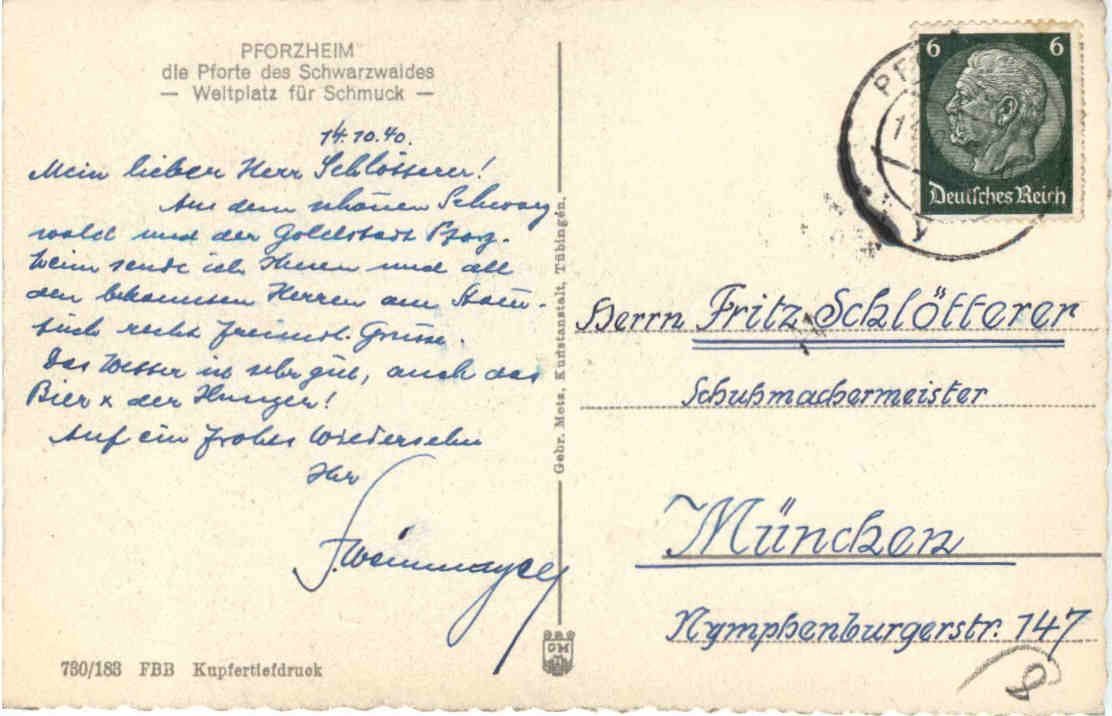 PFORZHEIM
die Pforte des Schwarzwaldes
— Weltplatz für Schmuck —
14.10.40.
Mein lieber Herr Schlötterer!
Aus dem schönen Schwarz
wald und der Goldstadt Pforz-
heim sende ich Ihnen und all
den bekannten Herren am Stam-
tisch recht freundl. Grüsse.
Das Wetter ist sehr gut, auch das
Bier x der Hunger!
Auf ein frohes Wiedersehn
Ihr
730/183 FBB Kupfertiefdruck
Gebr. Metz, Kunstanstalt, Tübingen.
GM
6 6
Deutsches Reich
PF
Herrn Fritz Schlötterer
Schuhmachermeister
München
Nymphenburgerstr. 147
8